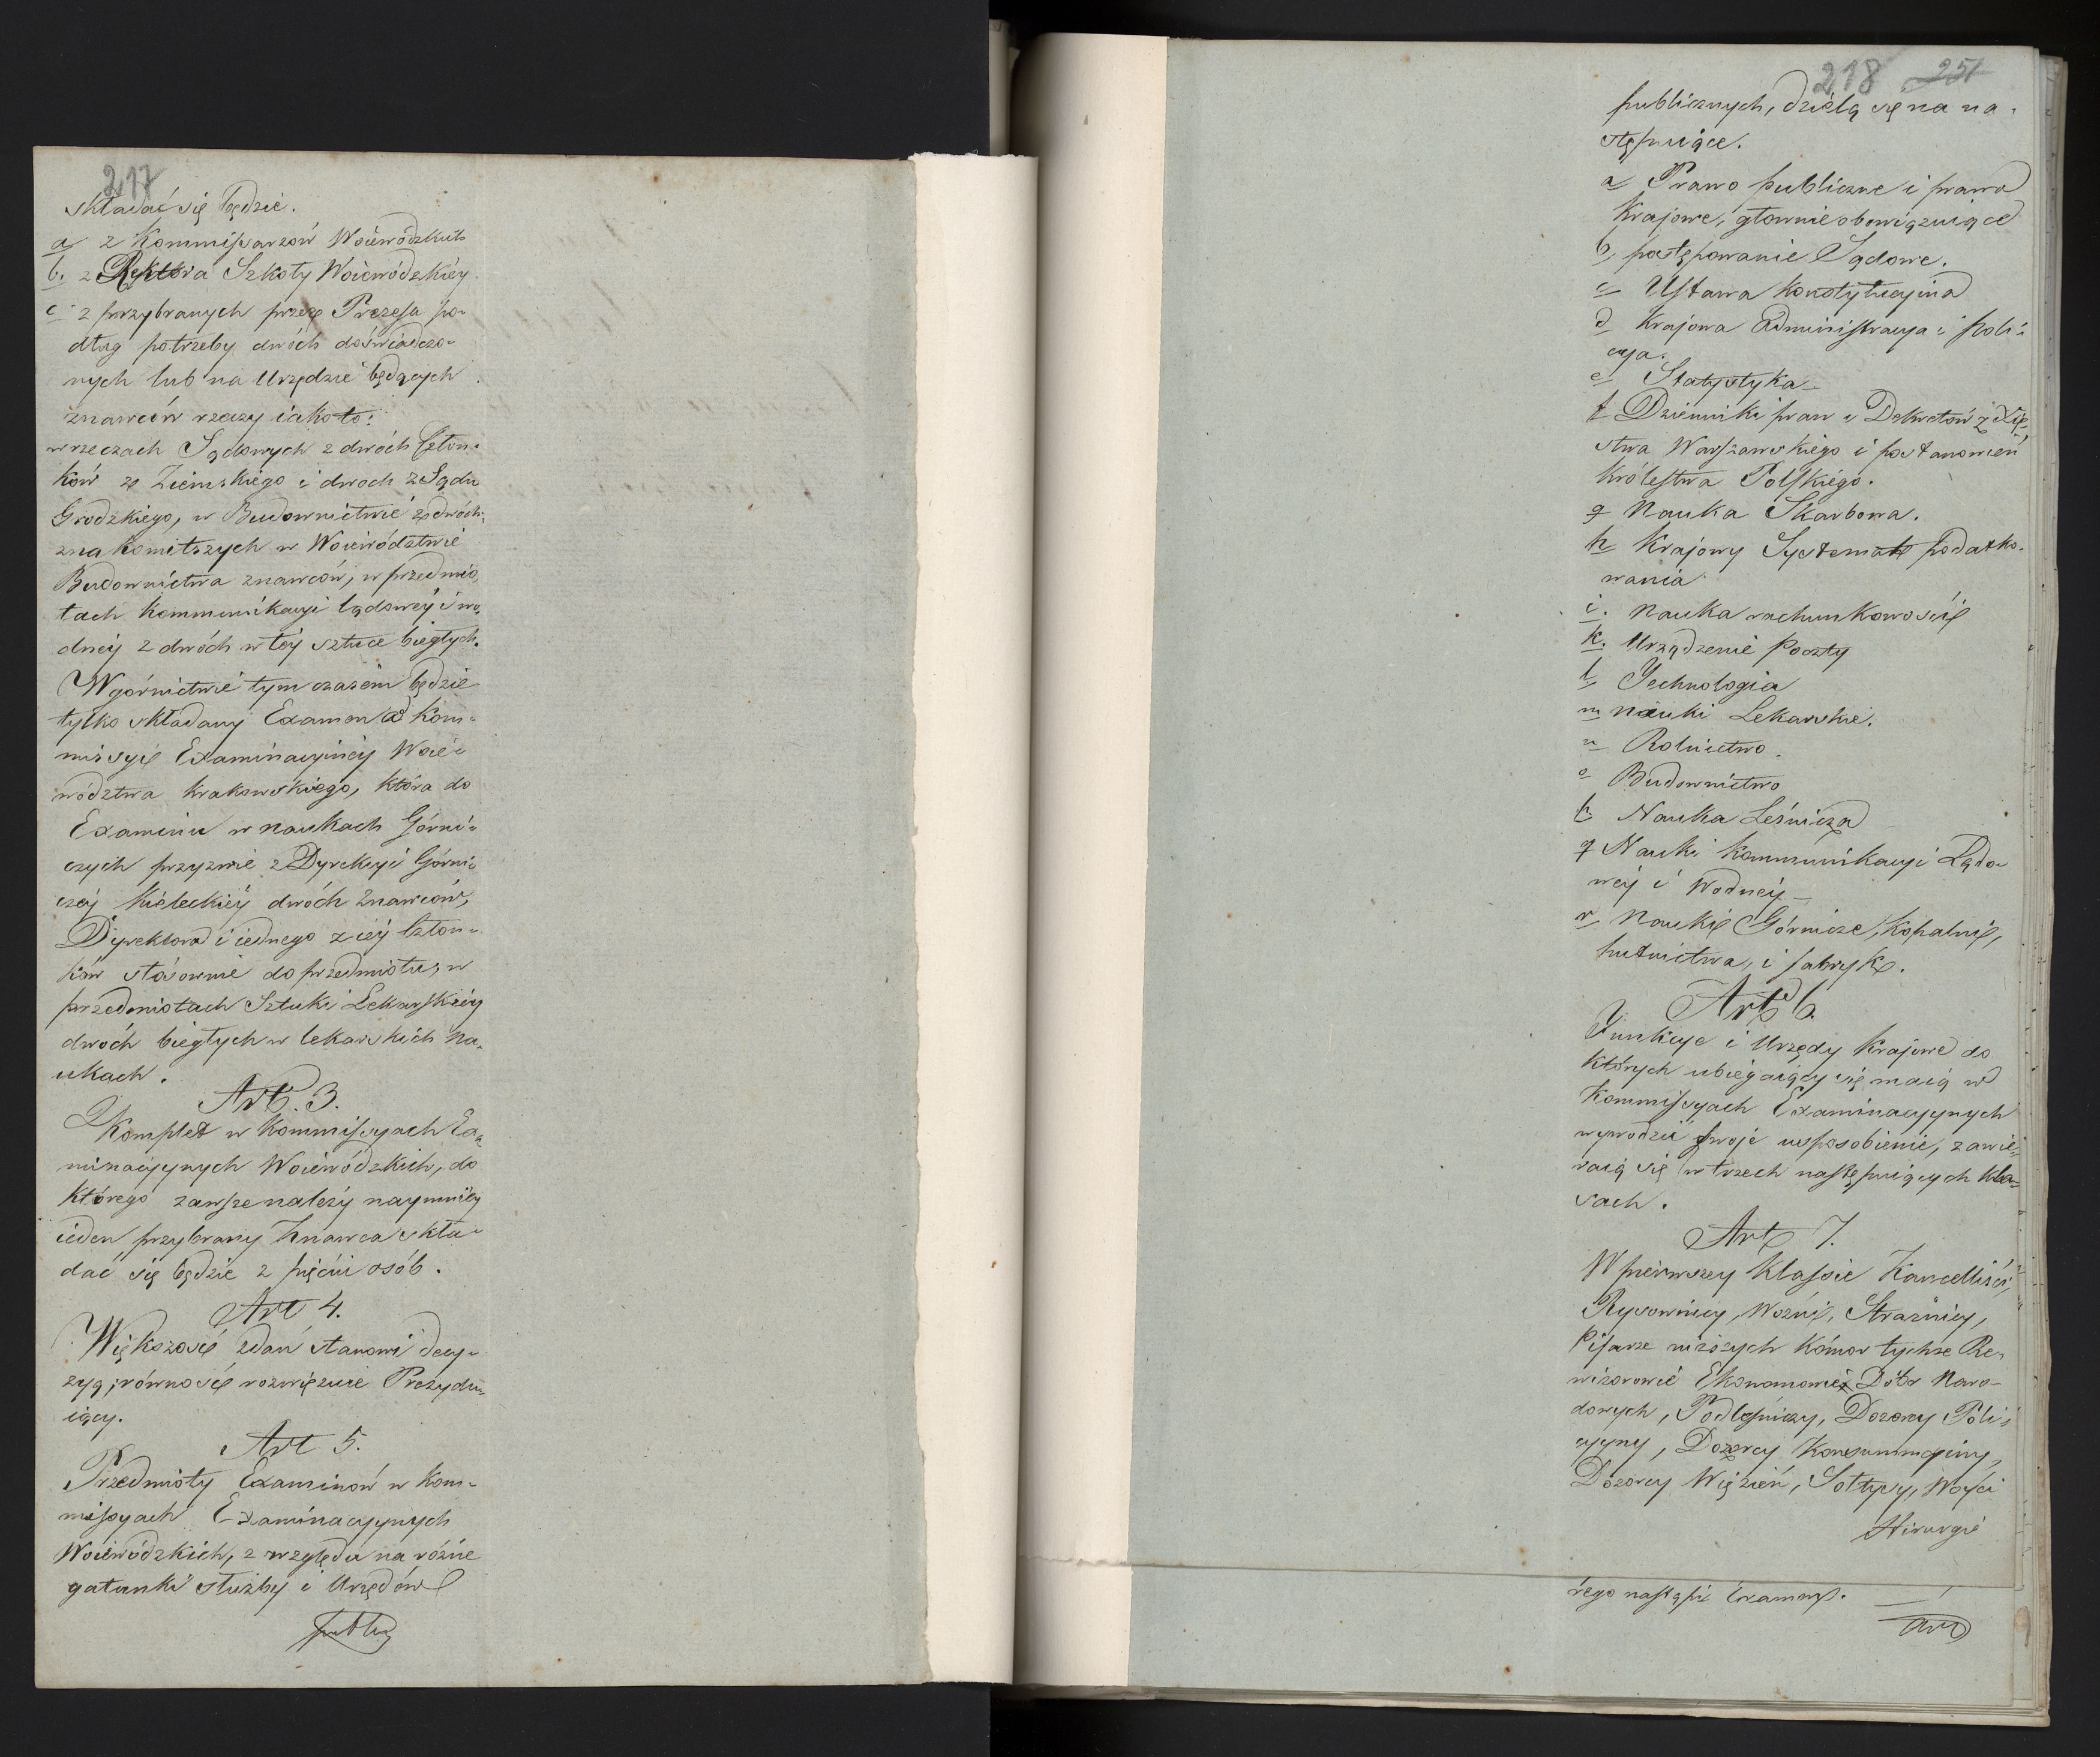 217
składać się będzie.
a z Kommissarzów Woiewódzkich
b. z Rektora Szkoły Woiewódzkiéy
c z przybranych przez Prezesa po-
dług potrzeby dwóch doświadczo-
nych lub na Urzędzie będących
znawców rzeczy iakoto:
w rzeczach Sądowych z dwóch Człon-
ków z Ziemskiego i dwoch z Sądu
Grodzkiego, w Budownictwie z dwóch
znakomitszych w Woiewództwie
Budownictwa znawców, w przedmio-
tach kommunikacyi lądowéy i wo-
dnéy z dwóch w téy sztuce biegłych.
W górnictwie tym czasem będzie
tylko składany Examen w Kom-
missyi Examinacyinéy Woie-
wództwa Krakowskiego, która do
Examinu w naukach Górni-
czych przyzwie z Dyrekcyi Górni-
czéy Kieleckiéy dwóch znawców,
Dyrektora i iednego z iéy Człon-
ków stósownie do przedmiotu, w
przedmiotach Sztuki Lekarskiéy
dwóch biegłych w lekarskich Na-
ukach.
Art. 3.
Komplet w Kommissyach Exa-
minacyynych Woiewódzkich, do
którego zawsze należy naymniéy
ieden przybrany Znawca skła-
dać się będzie z pięciu osób.
Art 4.
Większość zdań stanowi decy-
zyą, równość rozwięzuie Prezydu-
iący.
Art 5.
Przedmioty Examinów w Kom-
missyach Examinacyynych
Woiewódzkich, z względu na różne
gatunki służby i Urzędów
publi
218 251
publicznych, dzielą się na na-
stępuiące.
a Prawo publiczne i prawa
Krajowe, głownie obowiązuiące
b, postępowanie Sądowe.
c Ustawa Konstytucyina
d Krajowa Administracya i Poli-
cya.
e Statystyka
f Dzienniki praw i Dekretów z Xię-
stwa Warszawskiego i postanowień
Królestwa Polskiego.
g Nauka Skarbowa.
h Krajowy Systemat podatko-
wania
i. Nauka rachunkowości
k. Urządzenie Poczty
l, Technologia
m Nauki Lekarskie.
n Rolnictwo.
o Budownictwo
p. Nauka Leśnicza
q Nauki Kommunikacyi Lądo-
wéy i Wodnéy
r Nauki Górnicze, Kopalni,
hutnictwa, i fabryk.
Art 6.
Funkcye i Urzędy Krajowe do
których ubiegaiący się maią w
Kommissyach Examinacyynych
wywodzić swoje usposobienie, zawie-
raią się w trzech następuiących Kla-
sach.
Art 7.
W pierwszey Klassie Kancelliści,
Rysownicy, Woźni, Strażnicy,
Pisarze niższych Kómor tychże Re-
wizorowie Ekonomowie Dóbr Naro-
dowych, Podleśniczy, Dozorcy Poli-
cyyny, Dozorcy Konsummcyiny,
Dozorcy Więzień, Sołtysy, Woyci
Hirurgie
rego nastąpi Examen.
Art